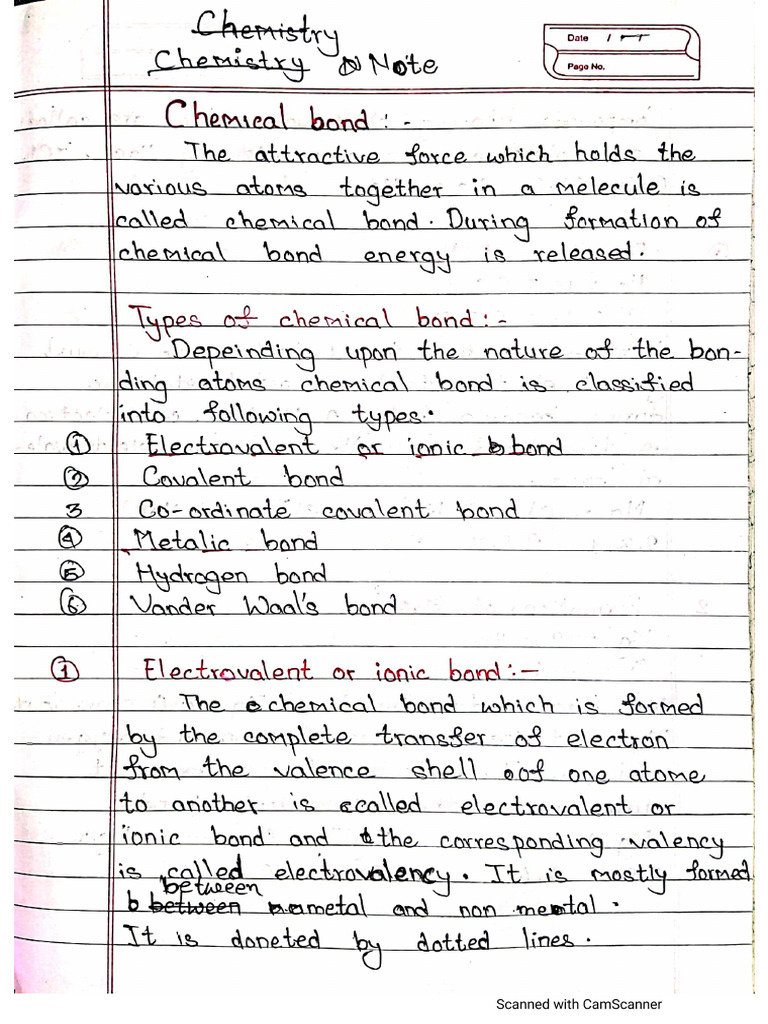 Chemistry
Chemistry Note
Date
Page No.
Chemical bond :-
The attractive force which holds the
various atoms together in a melecule is
called chemical bond. During formation of
chemical bond energy is released.
Types of chemical bond :-
Depeinding upon the nature of the bon-
ding atoms chemical bond is classified
into following types.
① Electrovalent or ionic bond
② Covalent bond
3 Co-ordinate covalent bond
④ Metalic bond
⑤ Hydrogen bond
⑥ Vander Waal's bond
① Electrovalent or ionic bond :-
The chemical bond which is formed
by the complete transfer of electron
from the valence shell of one atome
to another is called electrovalent or
ionic bond and the corresponding valency
is called electrovalency. It is mostly formed
between
b between metal and non mental.
It is doneted by dotted lines.
Scanned with CamScanner